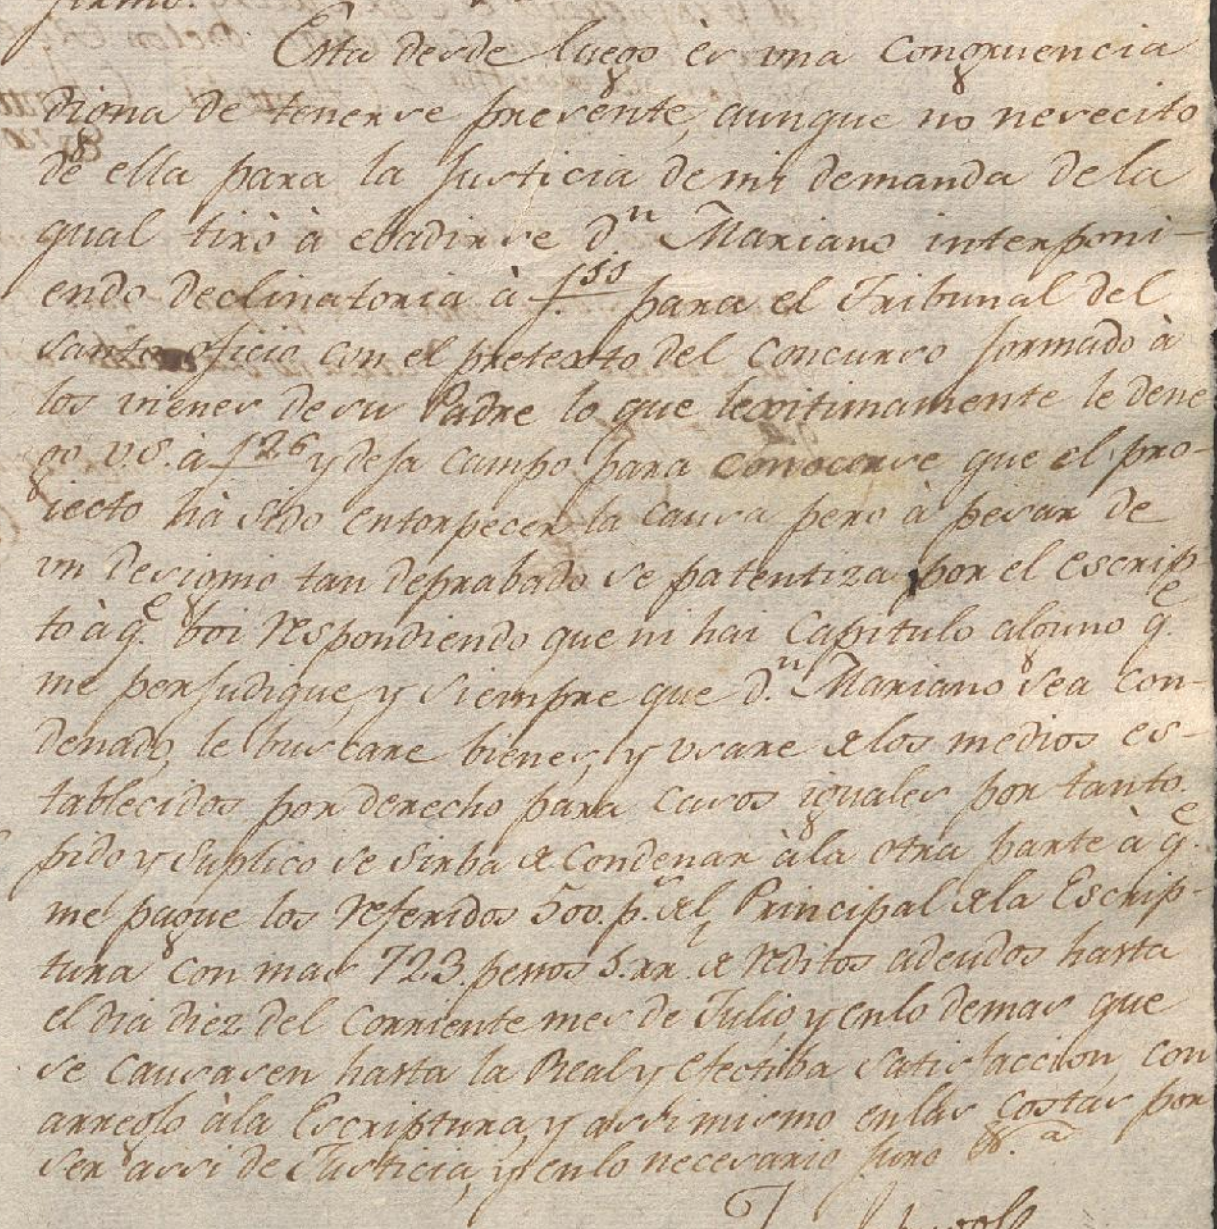 firmo.
Esta desde luego es una congruencia
digna de tenerse presente, aunque no nesecito
de ella para la Justicia de mi demanda de la
qual tirò à ebadirse d.n Mariano interponi-
endo declinatoria à f. para el Tribunal del
santo oficio con el pretexto del concurso formado à
los vienes de su Padre lo que legitimamente le dene
go V.S. à f 126 y deja campo para conocerse que el pro-
iecto hà sido entorpecer la causa pero à pesar de
un designio tan deprabado se patentiza por el escrip
to à q.e boi respondiendo que ni hai Capitulo alguno q.e
me perjudique, y siempre que d.n Mariano sea con-
denado, le buscare bienes, y usare de los medios es-
tablecidos por derecho para casos iguales por tanto.
pido y suplico se sirba de condenar à la otra parte à q.e
me pague los referidos 500. p.s del Principal de la Escrip-
tura con mas 723. pesos 5. rr. de reditos adeudos hasta
el dia diez del corriente mes de Julio, y en lo demas que
se causasen hasta la Real y efectiba satisfaccion, con
arreglo à la Escriptura, y assimismo en las costas por
ser assi de Justicia, y en lo necesario juro &.a